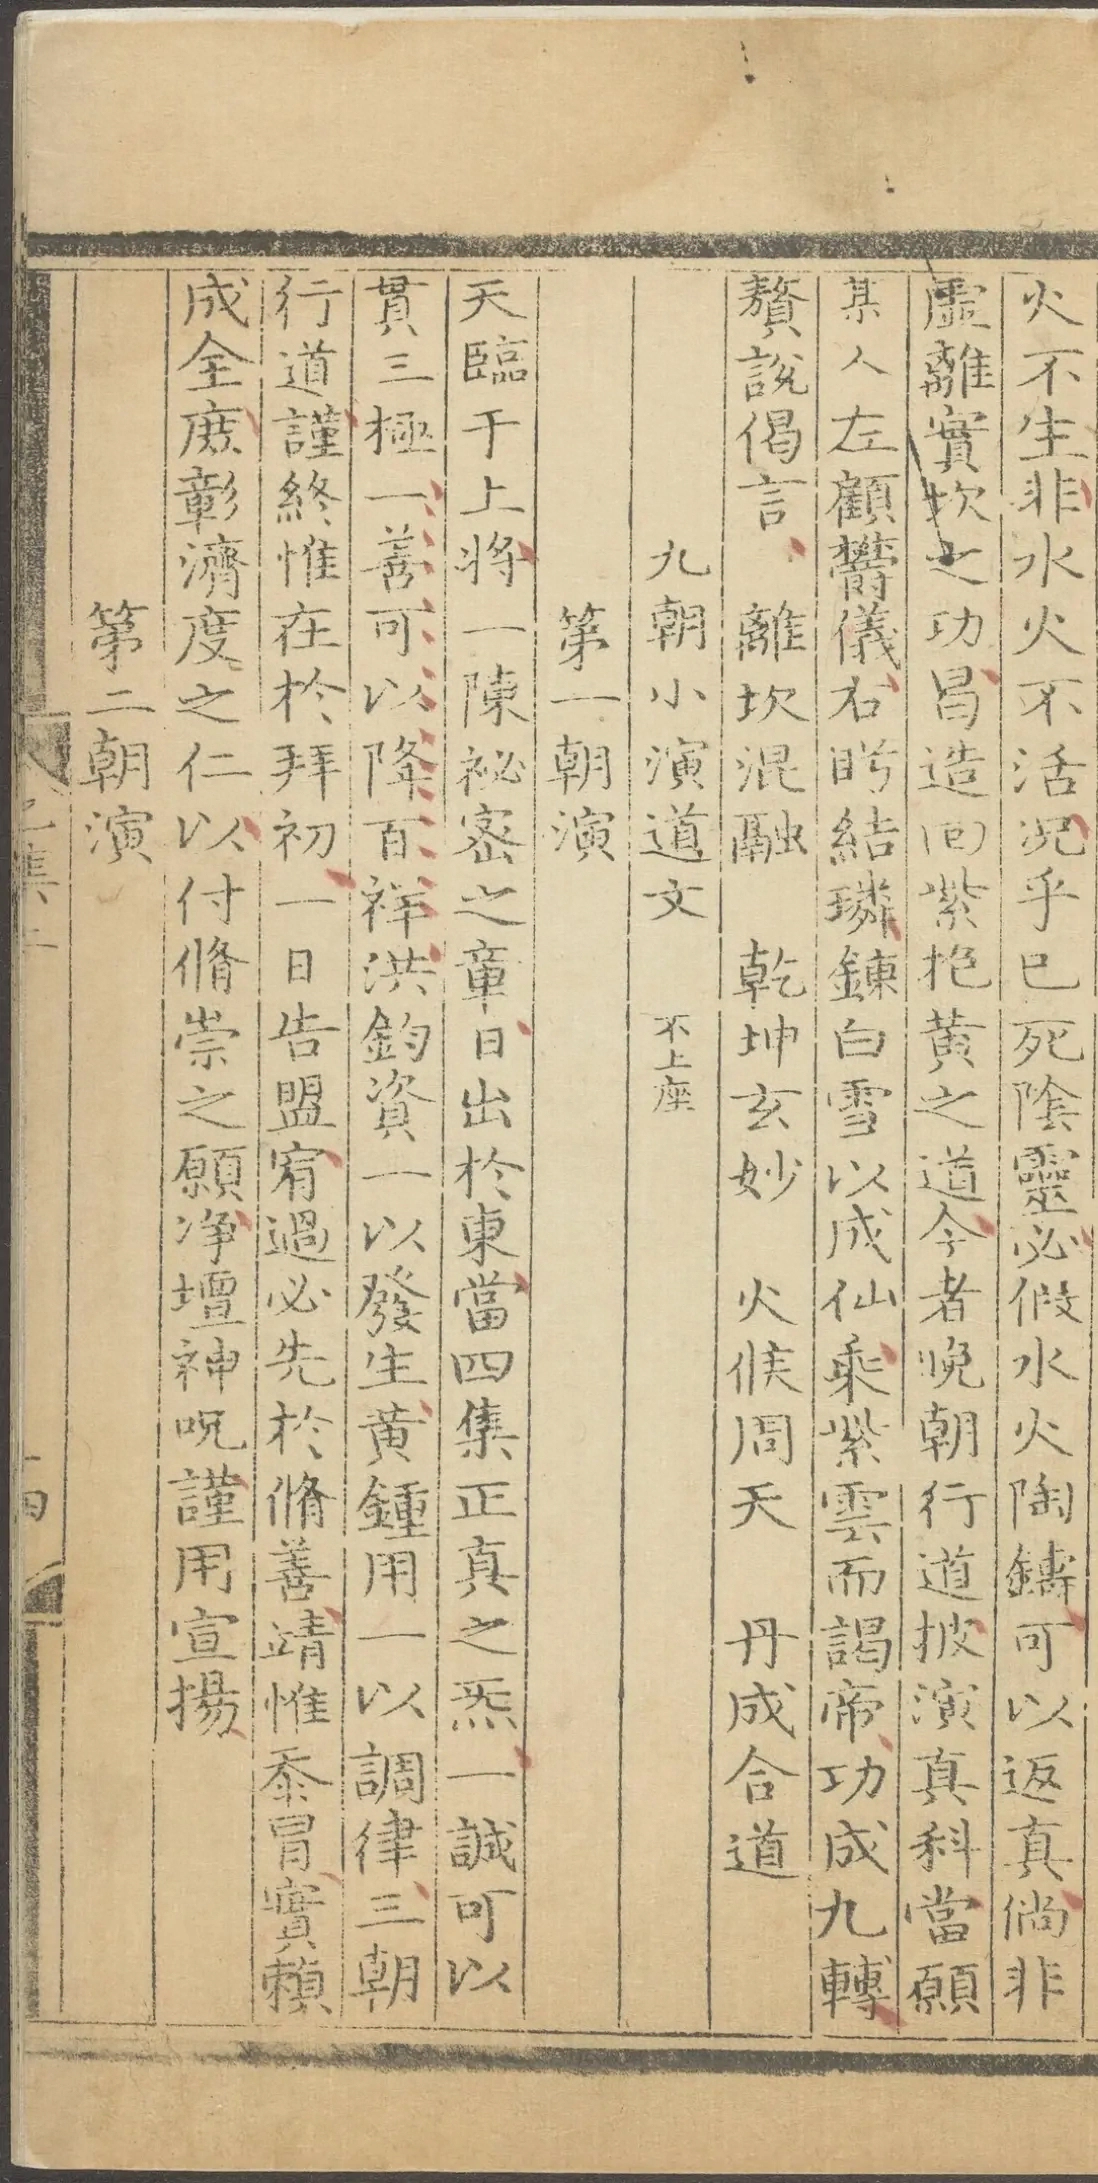 火不生非水火不活况乎已死陰靈必假水火陶鑄可以返真倘非
虛離實坎之功曷造回紫抱黃之道今者晚朝行道披演真科當願
某人左顧欝儀右盻結璘鍊白雪以成仙乘紫雲而謁帝功成九轉
贅說偈言 離坎混融 乾坤玄妙 火候周天 丹成合道
九朝小演道文 不上座
第一朝演
天臨于上將一陳祕密之章日出於東當四集正真之炁一誠可以
貫三極一善可以降百祥洪鈞資一以發生黃鍾用一以調律三朝
行道謹終惟在於拜初一日告盟宥過必先於脩善靖惟忝冒實賴
成全庶彰濟度之仁以付脩崇之願净壇神呪謹用宣揚
第二朝演